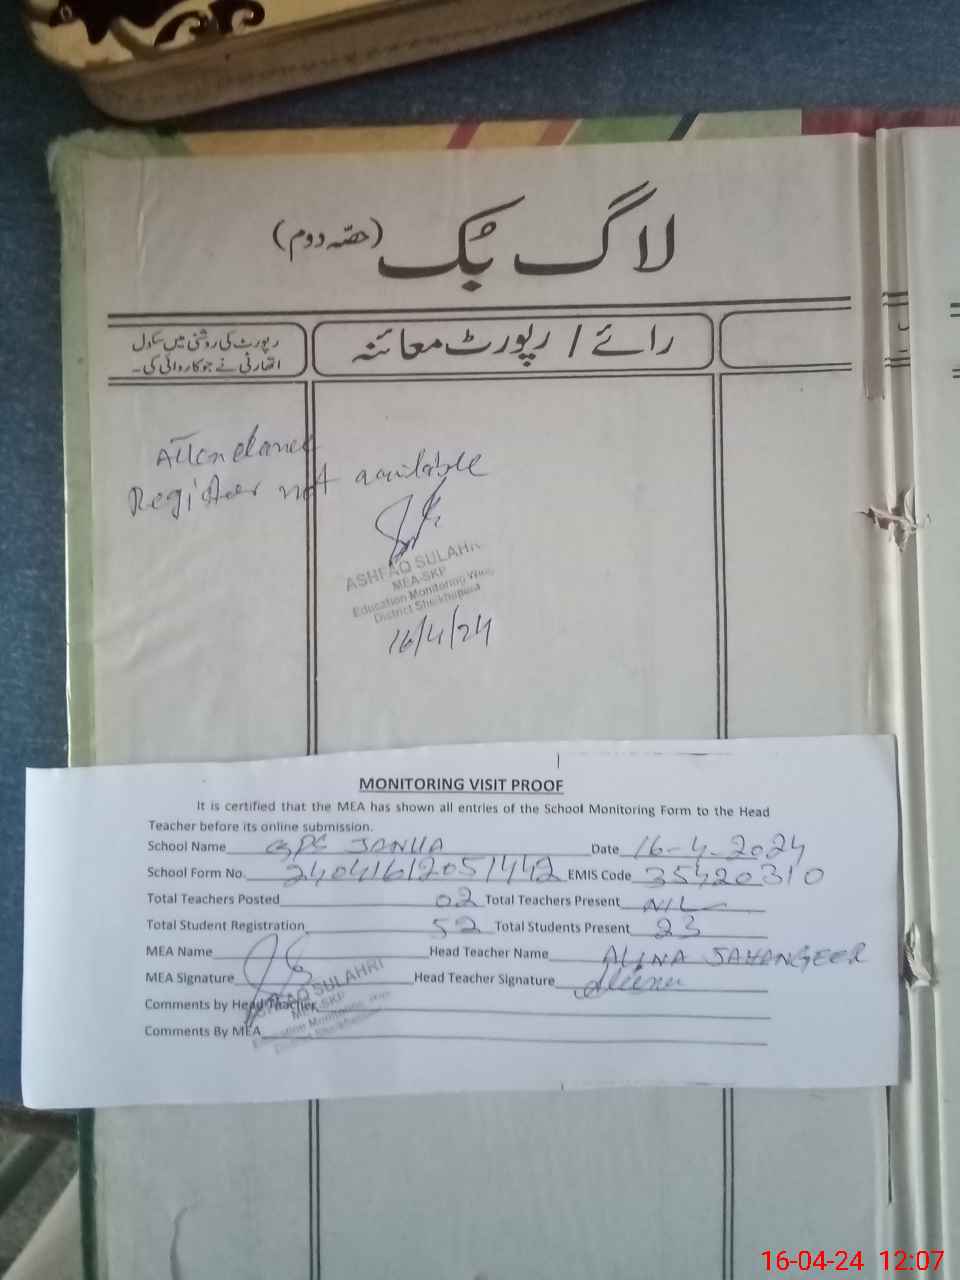 لاگ بُک (حصّہ دوم)
رائے / رپورٹ معائنہ
رپورٹ کی روشنی میں سکول
اتھارٹی نے جو کاروائی کی۔
Attendance
Register not available
ASHFAQ SULAHRI
MEA-SKP
Education Monitoring Wing
District Sheikhupura
16/4/24
MONITORING VISIT PROOF
It is certified that the MEA has shown all entries of the School Monitoring Form to the Head
Teacher before its online submission.
School Name GPS JANUA Date 16-4-2024
School Form No. 24041612051442 EMIS Code 35420310
Total Teachers Posted 02 Total Teachers Present NIL
Total Student Registration 52 Total Students Present 23
MEA Name Head Teacher Name ALINA JAHANGEER
MEA Signature Head Teacher Signature Alina
Comments by Head Teacher
Comments By MEA
ASHFAQ SULAHRI
MEA-SKP
Education Monitoring Wing
District Sheikhupura
16-04-24 12:07